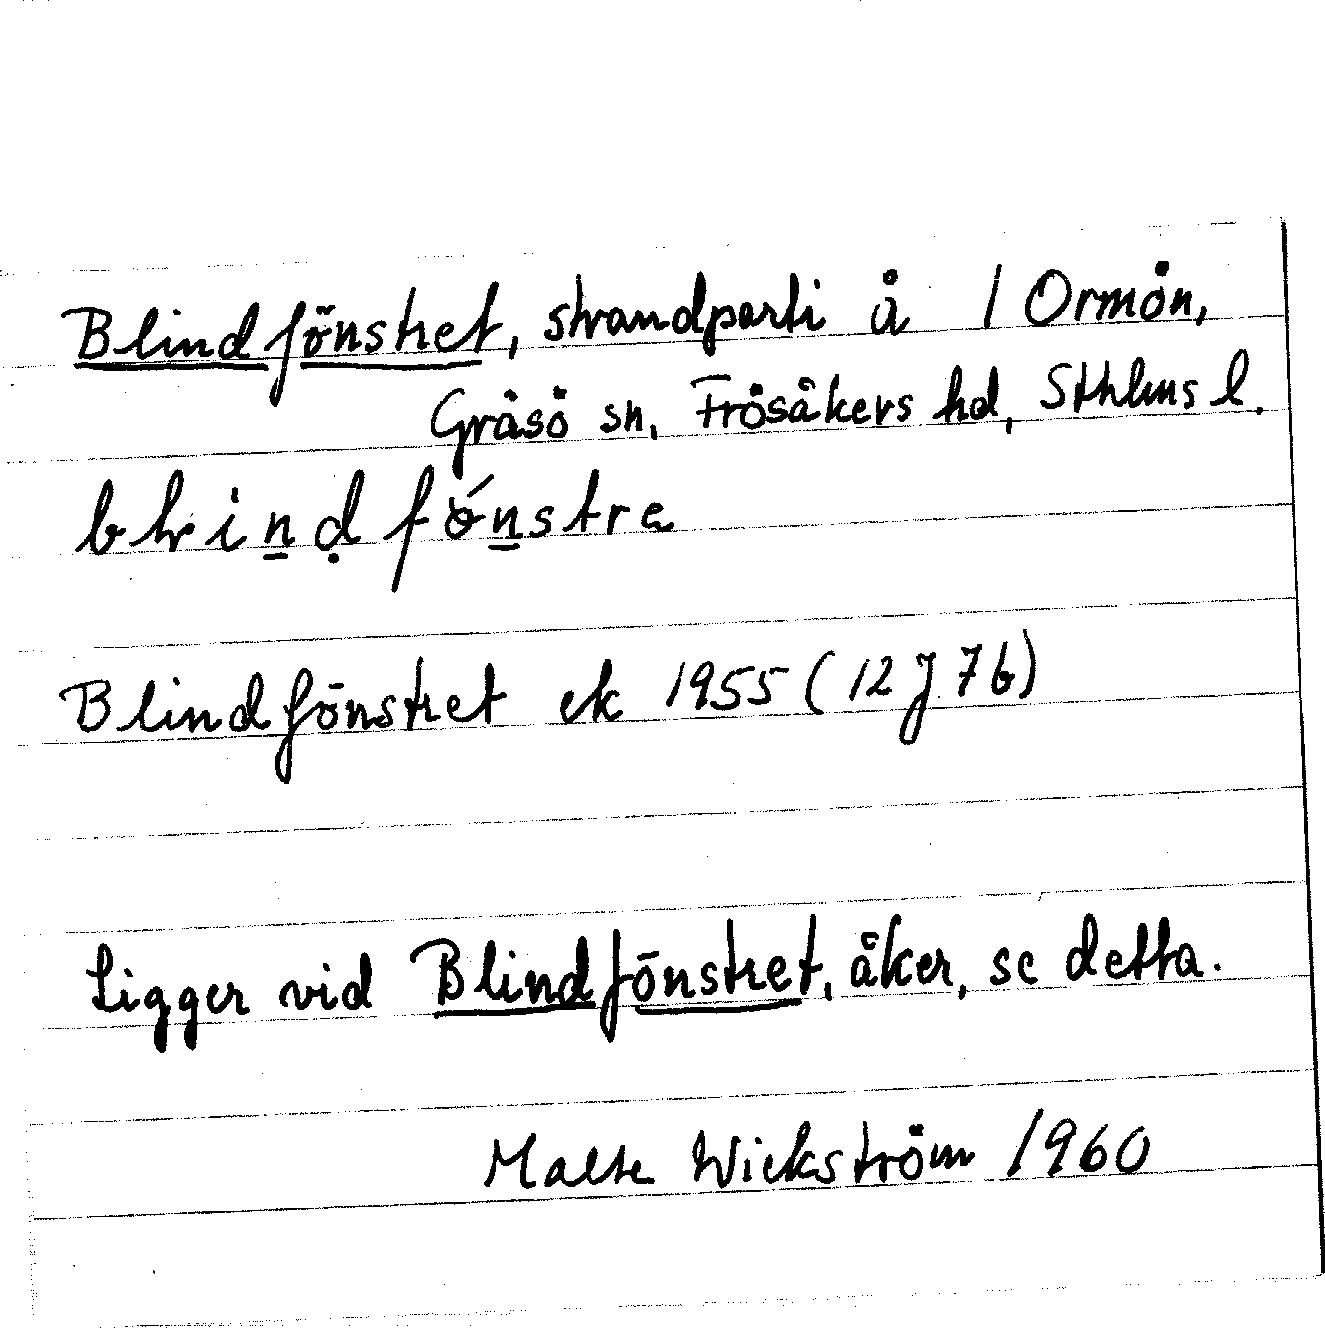 Blindfönstret, strandparti å 1 Ormön,
Gräsö sn, Frösåkers hd, Sthlms l.
Blindfönstret ek 1955 (12 J 7b)
Ligger vid Blindfönstret, åker, se detta.
Malte Wickström 1960